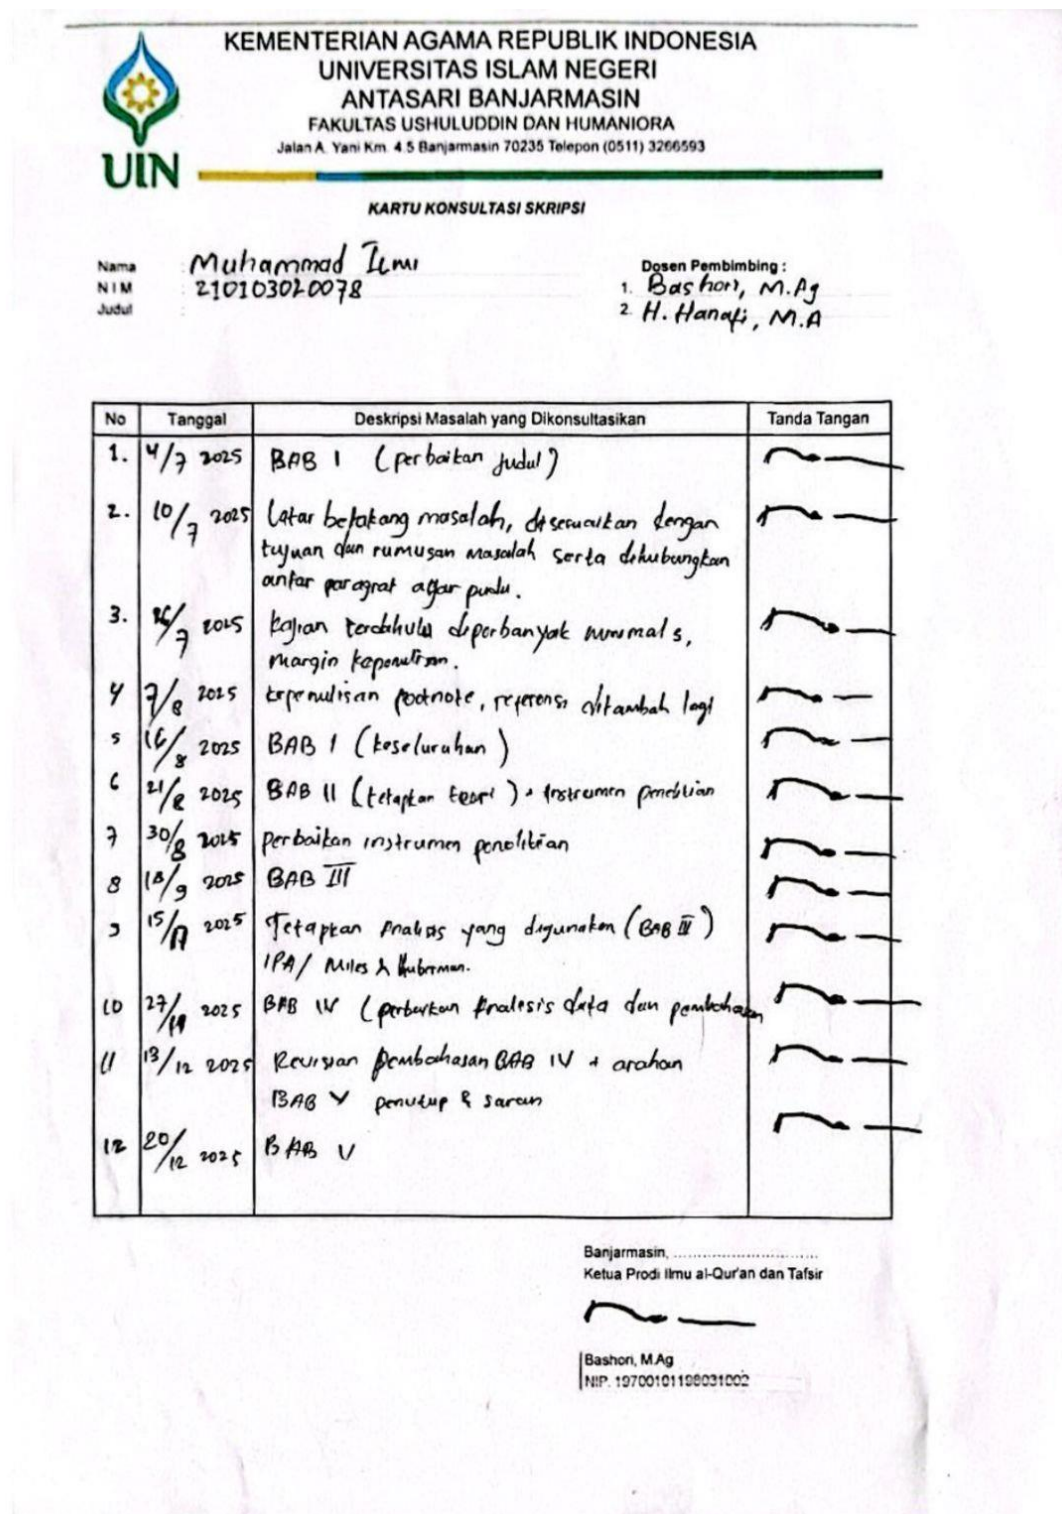 KEMENTERIAN AGAMA REPUBLIK INDONESIA
UNIVERSITAS ISLAM NEGERI
ANTASARI BANJARMASIN
FAKULTAS USHULUDDIN DAN HUMANIORA
Jalan A. Yani Km. 4.5 Banjarmasin 70235 Telepon (0511) 3266593
UIN
KARTU KONSULTASI SKRIPSI
Nama : Muhammad Ilmi
NIM : 210103020078
Judul :
Dosen Pembimbing :
1. Bashori, M.Ag
2. H. Hanafi, M.A
No Tanggal Deskripsi Masalah yang Dikonsultasikan Tanda Tangan
1. 4/7 2025 BAB I (perbaikan judul)
2. 10/7 2025 Latar belakang masalah, disesuaikan dengan
tujuan dan rumusan masalah serta dihubungkan
antar paragraf agar
3. /7 2025 Kajian terdahulu diperbanyak minimal 5,
margin kepenulisan.
4 7/8 2025 kepenulisan footnote, referensi ditambah lagi
5 16/8 2025 BAB I (keseluruhan)
6 21/8 2025 BAB II (tetapkan teori) + Instrumen penelitian
7 30/8 2025 perbaikan instrumen penelitian
8 18/9 2025 BAB III
9 15/11 2025 Tetapkan Analisis yang digunakan (BAB III)
IPA/ Miles & Huberman.
10 27/11 2025 BAB IV (perbaikan Analisis data dan pembahasan
11 13/12 2025 Revisian pembahasan BAB IV + arahan
BAB V penutup & saran
12 20/12 2025 BAB V
Banjarmasin, ..............................
Ketua Prodi Ilmu al-Qur'an dan Tafsir
Bashori, M.Ag
NIP. 19700101198031002